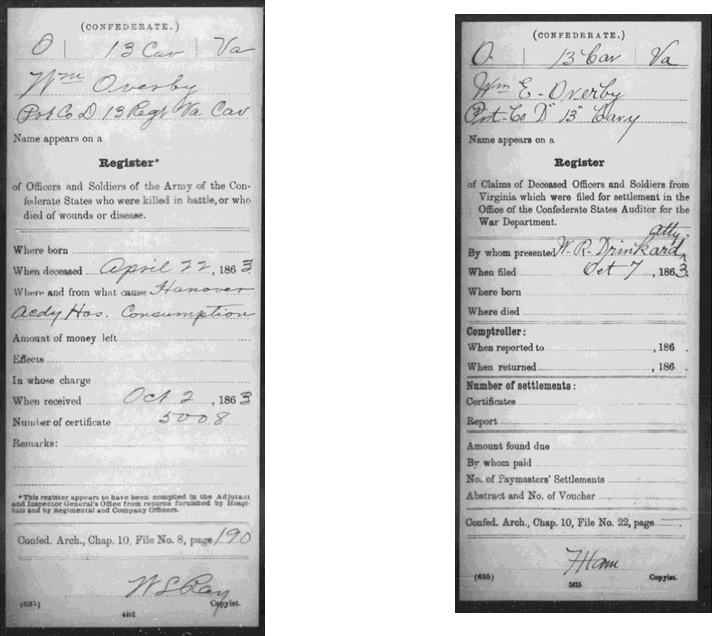 (CONFEDERATE.)
O | 13 Cav | Va
Wm Overby
Pvt Co D 13 Regt Va Cav
Name appears on a
Register*
of Officers and Soldiers of the Army of the Con-
federate States who were killed in battle, or who
died of wounds or disease.
Where born
When deceased April 22, 1863.
Where and from what cause Hanover
Acdy Hos. Consumption
Amount of money left
Effects
In whose charge
When received Oct 2, 1863
Number of certificate 5008
Remarks:
*This register appears to have been compiled in the Adjutant
and Inspector General's Office from returns furnished by Hospi-
tals and by Regimental and Company Officers.
Confed. Arch., Chap. 10, File No. 8, page 190
W S Ray
(635) Copyist.
(CONFEDERATE.)
O. | 13 Cav | Va
Wm E. Overby
Pvt- Co D" 13" Cavy
Name appears on a
Register
of Claims of Deceased Officers and Soldiers from
Virginia which were filed for settlement in the
Office of the Confederate States Auditor for the
War Department.
atty.
By whom presented W. R. Drinkard
When filed Oct 7, 1863.
Where born
Where died
Comptroller:
When reported to , 186 .
When returned , 186 .
Number of settlements:
Certificates
Report
Amount found due
By whom paid
No. of Paymasters' Settlements
Abstract and No. of Voucher
Confed. Arch., Chap. 10, File No. 22, page
(635) Copyist.